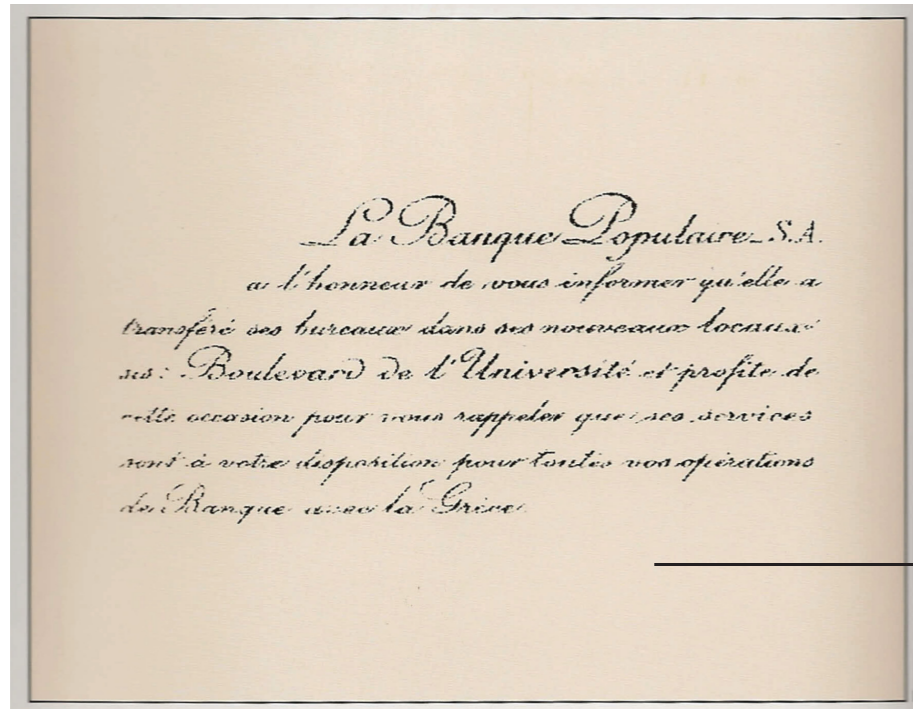 La Banque Populaire S.A.
a l'honneur de vous informer qu'elle a
transféré ses bureaux dans ses nouveaux locaux
sis: Boulevard de l'Université et profite de
cette occasion pour vous rappeler que ses services
sont à votre disposition pour toutes vos opérations
de Banque avec la Grèce